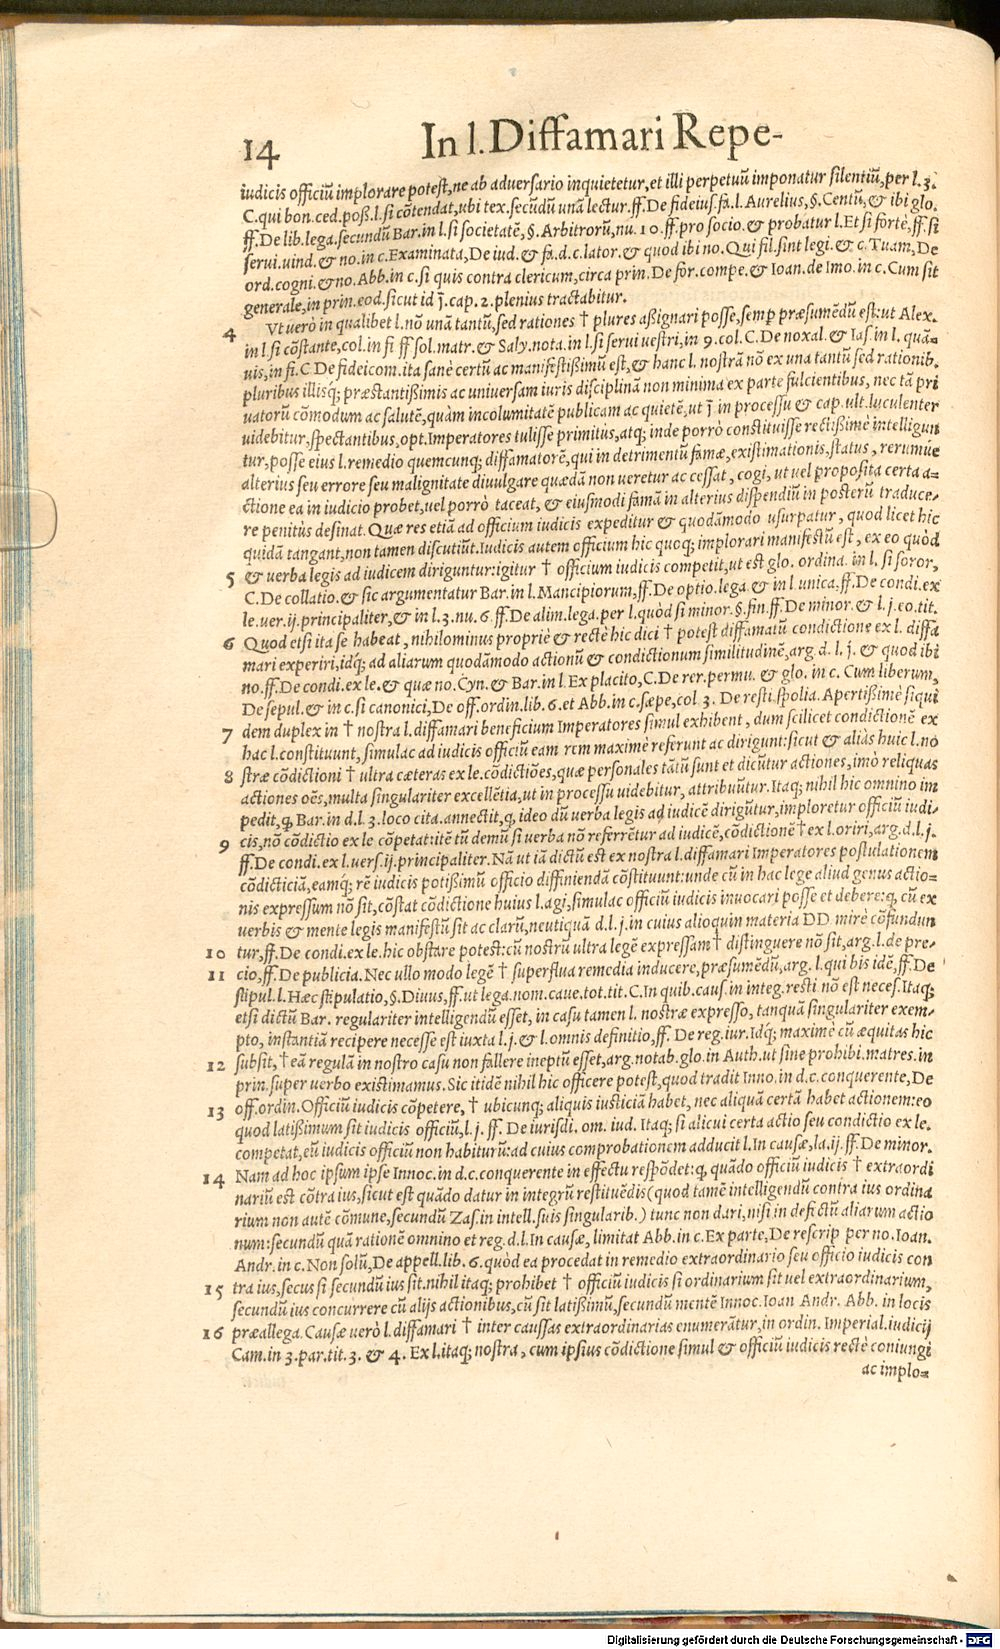 14 In l. Diffamari Repe-
iudicis officiũ implorare potest, ne ab adversario inquietetur, et illi perpetuũ imponatur silentiũ, per l. 3.
C. qui bon. ced. poß. l. si cõtendat, ubi tex. secũdũ unã lectur. ff. De fideius. fa. l. Aurelius, §. Centũ, & ibi glo.
ff. De lib. lega. secundũ Bar. in l. si societatẽ, §. Arbitrorũ, nu. 10. ff. pro socio. & probatur l. Et si fortè, ff. si
servi. uind. & no. in c. Examinata, De iud. & fa. d. c. lator. & quod ibi no. Qui fil. sint legi. & c. Tuam, De
ord. cogni. & no. Abb. in c. si quis contra clericum, circa prin. De for. compe. & Ioan. de Imo. in c. Cum sit
generale, in prin. eod. sicut id j̃. cap. 2. plenius tractabitur.
4 Vt uerò in qualibet l. nõ unã tantũ, sed rationes † plures aßignari posse, semp præsumẽdũ est: ut Alex.
in l. si cõstante, col. in fi ff sol. matr. & Saly. nota. in l. si serui uestri, in 9. col. C. De noxal. & Ias. in l. quã-
uis, in fi. C. De fideicom. ita sanè certũ ac manifestißimũ est, & hanc l. nostrã nõ ex una tantũ sed rationib.
pluribus illisq́; præstantißimis ac universam iuris disciplinã non minima ex parte fulcientibus, nec tã pri
uatorũ cõmodum ac salutẽ, quàm incolumitatẽ publicam ac quietẽ, ut j̃ in processu & cap. ult. luculenter
uidebitur, spectantibus, opt. Imperatores tulisse primitùs, atq; inde porrò constituisse rectißimè intelligun
tur, posse eius l. remedio quemcunq; diffamatorẽ, qui in detrimentũ famæ, existimationis. status, rerumúe
alterius seu errore seu malignitate diuulgare quædã non ueretur ac cessat, cogi, ut uel proposita certa a-
ctione ea in iudicio probet, uel porrò taceat, & eiusmodi famã in alterius dispendiũ in posterũ traduce-
re penitùs desinat. Quæ res etiã ad officium iudicis expeditur & quodãmodo usurpatur, quod licet hic
quidã tangant, non tamen discutiũt. Iudicis autem officium hic quoq; implorari manifestũ est, ex eo quòd
5 & verba legis ad iudicem diriguntur: igitur † officium iudicis competit, ut est glo. ordina. in l. si soror,
C. De collatio. & sic argumentatur Bar. in l. Mancipiorum, ff. De optio. lega. & in l unica. ff. De condi. ex
le. ver. ij. principaliter, & in l. 3. nu. 6. ff. De alim. lega. per l. quòd si minor. §. fin. ff. De minor. & l. j. eo. tit.
6 Quod etsi ita se habeat, nihilominus propriè & rectè hic dici † potest diffamatũ condictione ex l. diffa
mari experiri, idq́; ad aliarum quodãmodo actionũ & condictionum similitudinẽ, arg. d. l. j. & quod ibi
no. ff. De condi. ex le. & quæ no. Cyn. & Bar. in l. Ex placito, C. De rer. permu. & glo. in c. Cum liberum,
De sepul. & in c. si canonici, De off. ordin. lib. 6. et Abb. in c. sæpe, col 3. De resti. spolia. Apertißimè siqui
7 dem duplex in † nostra l. diffamari beneficium Imperatores simul exhibent, dum scilicet condictionẽ ex
hac l. constituunt, simulac ad iudicis officiũ eam rem maximè referunt ac dirigunt: sicut & aliàs huic l. no
8 stræ cõdictioni † ultra cæteras ex le. cõdictiões, quæ personales tãtũ sunt et dicũtur actiones, imò reliquas
actiones oẽs, multa singulariter excellẽtia, ut in processu uidebitur, attribuũtur. Itaq; nihil hic omnino im
pedit, ꝙ Bar. in d. l. 3. loco cita. annectit, ꝙ, ideo dũ uerba legis ad iudicẽ dirigũtur, imploretur officiũ iudi-
9 cis, nõ cõdictio ex le cõpetat: itẽ tũ demũ si uerba nõ referrẽtur ad iudicẽ, cõdictionẽ † ex l. oriri, arg. d. l. j.
ff. De condi. ex l. vers. ij. principaliter. Nã ut iã dictũ est ex nostra l. diffamari Imperatores postulationem
cõdicticiã, eamq́; rẽ iudicis potißimũ officio diffiniendã cõstituunt: unde cũ in hac lege aliud genus actio-
nis expressum nõ sit, cõstat cõdictione huius l. agi, simulac officiũ iudicis inuocari posse et debere: ꝙ cũ ex
uerbis & mente legis manifestũ sit ac clarũ, neutiquã d. l. j. in cuius alioquin materia DD. mirè cõfundun
10 tur, ff. De condi. ex le. hic obstare potest: cũ nostrũ ultra legẽ expressam † distinguere nõ sit, arg. l. de pre-
11 cio, ff. De publicia. Nec ullo modo legẽ † superflua remedia inducere, præsumẽdũ, arg. l. qui bis idẽ, ff. De
stipul. l. Hæc stipulatio, §. Diuus, ff. ut lega. nom. caue. tot. tit. C. In quib. caus. in integ. resti nõ est neces. Itaq;
etsi dictũ Bar. regulariter intelligendũ esset, in casu tamen l. nostræ expresso, tanquã singulariter exem-
pto, instantiã recipere necesse est iuxta l. j. & l. omnis definitio, ff. De reg. iur. Idq́; maximè cũ æquitas hic
12 subsit, † eã regulã in nostro casu non fallere ineptũ esset, arg. notab. glo. in Auth. ut sine prohibi. matres. in
prin. super verbo existimamus. Sic itidẽ nihil hic officere potest, quod tradit Inno. in d. c. conquerente, De
13 off. ordin. Officiũ iudicis cõpetere, † ubicunq; aliquis iusticiã habet, nec aliquã certã habet actionem: eo
quod latißimum sit iudicis officiũ, l. j. ff. De iurisdi. om. iud. Itaq; si alicui certa actio seu condictio ex le.
competat, eũ iudicis officiũ non habiturũ: ad cuius comprobationem adducit l. In causæ, la. ij. ff. De minor.
14 Nam ad hoc ipsum ipse Innoc. in d. c. conquerente in effectu respõdet: ꝙ, quãdo officiũ iudicis † extraordi
nariũ est cõtra ius, sicut est quãdo datur in integrũ restituẽdis (quod tamẽ intelligendũ contra ius ordina
rium non autẽ cõmune, secundũ Zas. in intell. suis singularib.) tunc non dari, nisi in defectũ aliarum actio
num: secundũ quã rationẽ omnino et reg. d. l. In causæ, limitat Abb. in c. Ex parte, De rescrip per no. Ioan.
Andr. in c. Non solũ, De appell. lib. 6. quòd ea procedat in remedio extraordinario seu officio iudicis con
15 tra ius, secus si secundũ ius sit. nihil itaq; prohibet † officiũ iudicis si ordinarium sit uel extraordinarium,
secundũ ius concurrere cũ alijs actionibus, cũ sit latißimũ, secundũ mentẽ Innoc. Ioan Andr. Abb. in locis
16 præallega. Causæ uerò l. diffamari † inter caussas extraordinarias enumerãtur, in ordin. Imperial. iudicij
Cam. in 3. par. tit. 3. & 4. Ex l. itaq; nostra, cum ipsius cõdictione simul & officiũ iudicis rectè coniungi
ac implo-
Digitalisierung gefördert durch die Deutsche Forschungsgemeinschaft - DFG